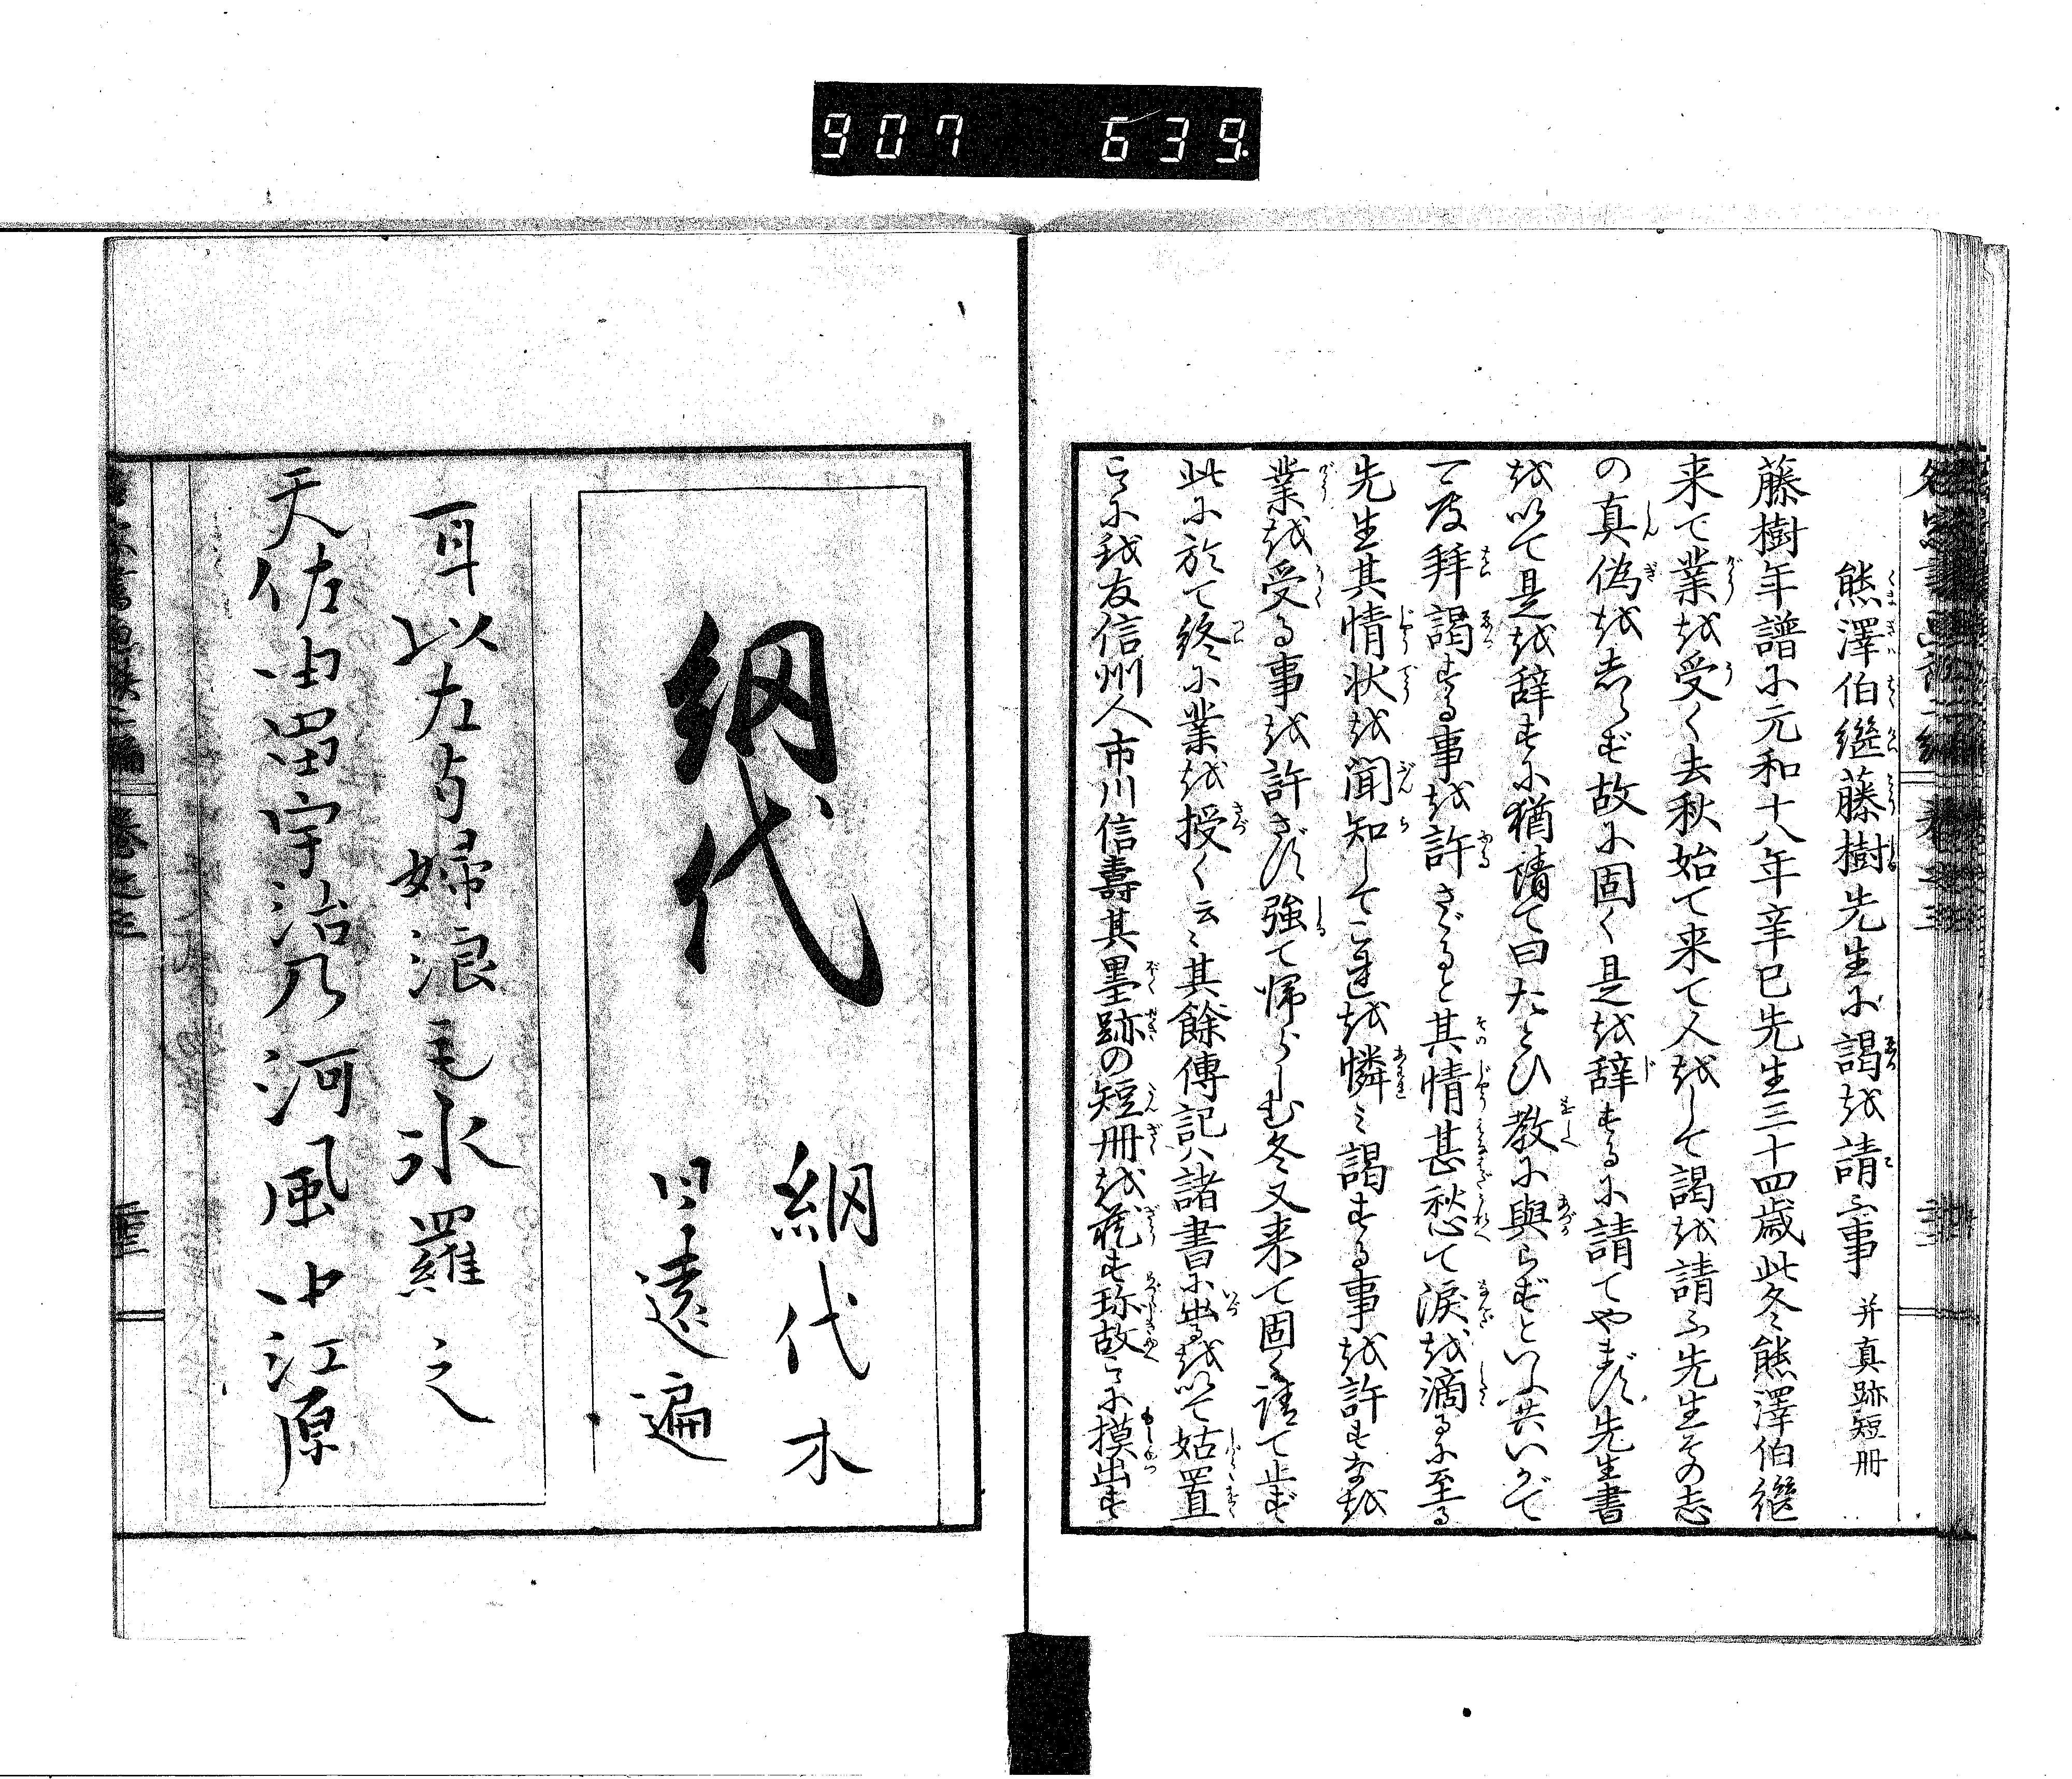 907 639
熊澤伯継藤樹先生に謁を請ふ事 并真跡短冊
藤樹年譜に元和十八年辛巳先生三十四歳此冬熊澤伯継
来て業を受く去秋始て来て人をして謁を請ふ先生その志
の真偽をしらず故に固く是を辞するに請てやまず先生書
を以て是を辞すに猶請て曰たとひ教に與らずといふ共いかで
一度拝謁する事を許さゞると其情甚愁て涙を滴るに至る
先生其情状を聞知してこれを憐ミ謁する事を許すなを
業を受る事を許さず強て帰らしむ冬又来て固く請て止ず
此に於て終に業を授く云々其餘傳記ハ諸書に出るを以て姑置
こゝに我友信州人市川信壽其墨跡の短冊を蔵す珎故こゝに摸出す
綱代
綱代木
日遠遍
耳以左与婦浪毛氷羅之
天佐由留宇治乃河風 中江原
卷之三